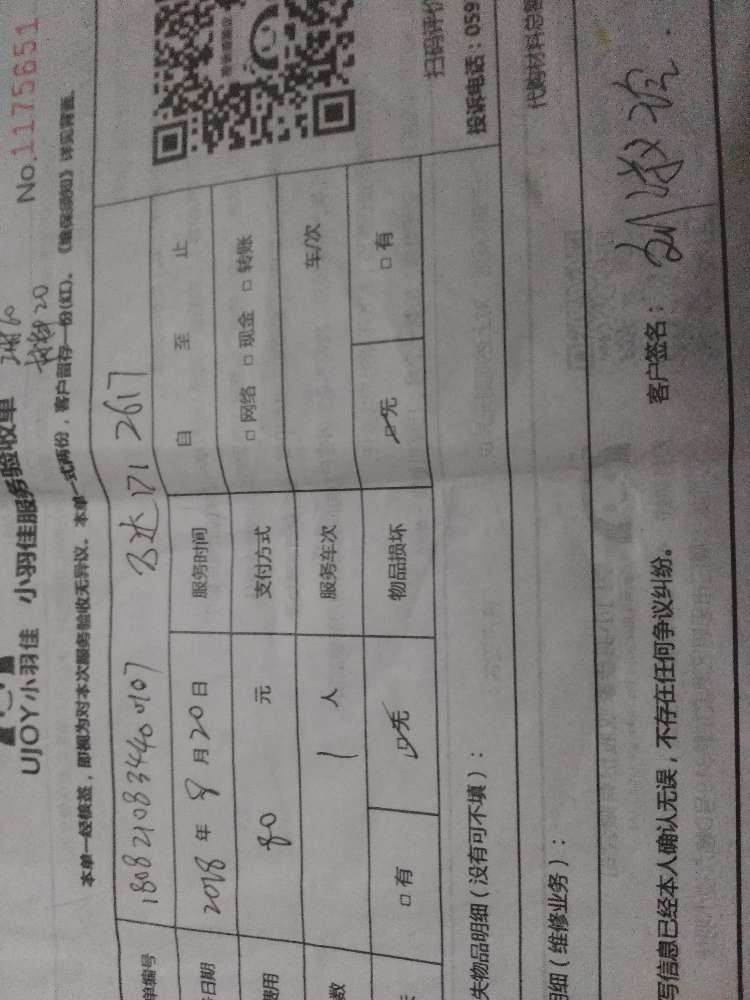 No.1175651
UJOY小羽佳 小羽佳服务验收单
本单一经核签，即视为对本次服务验收无异议。本单一式两份，客户留存一份(红)。《维保须知》详见背面。
单编号 1808210834400107
日期 2018 年 8 月 20 日 服务时间 自 至 止
费用 80 元 支付方式 □ 网络 □ 现金 □ 转账
数 1 人 服务车次 车/次
□ 有 ☑ 无 物品损坏 ☑ 无 □ 有
扫码评价
投诉电话：059
失物品明细（没有可不填）：
代购材料总额
明细（维修业务）：
写信息已经本人确认无误，不存在任何争议纠纷。 客户签名：